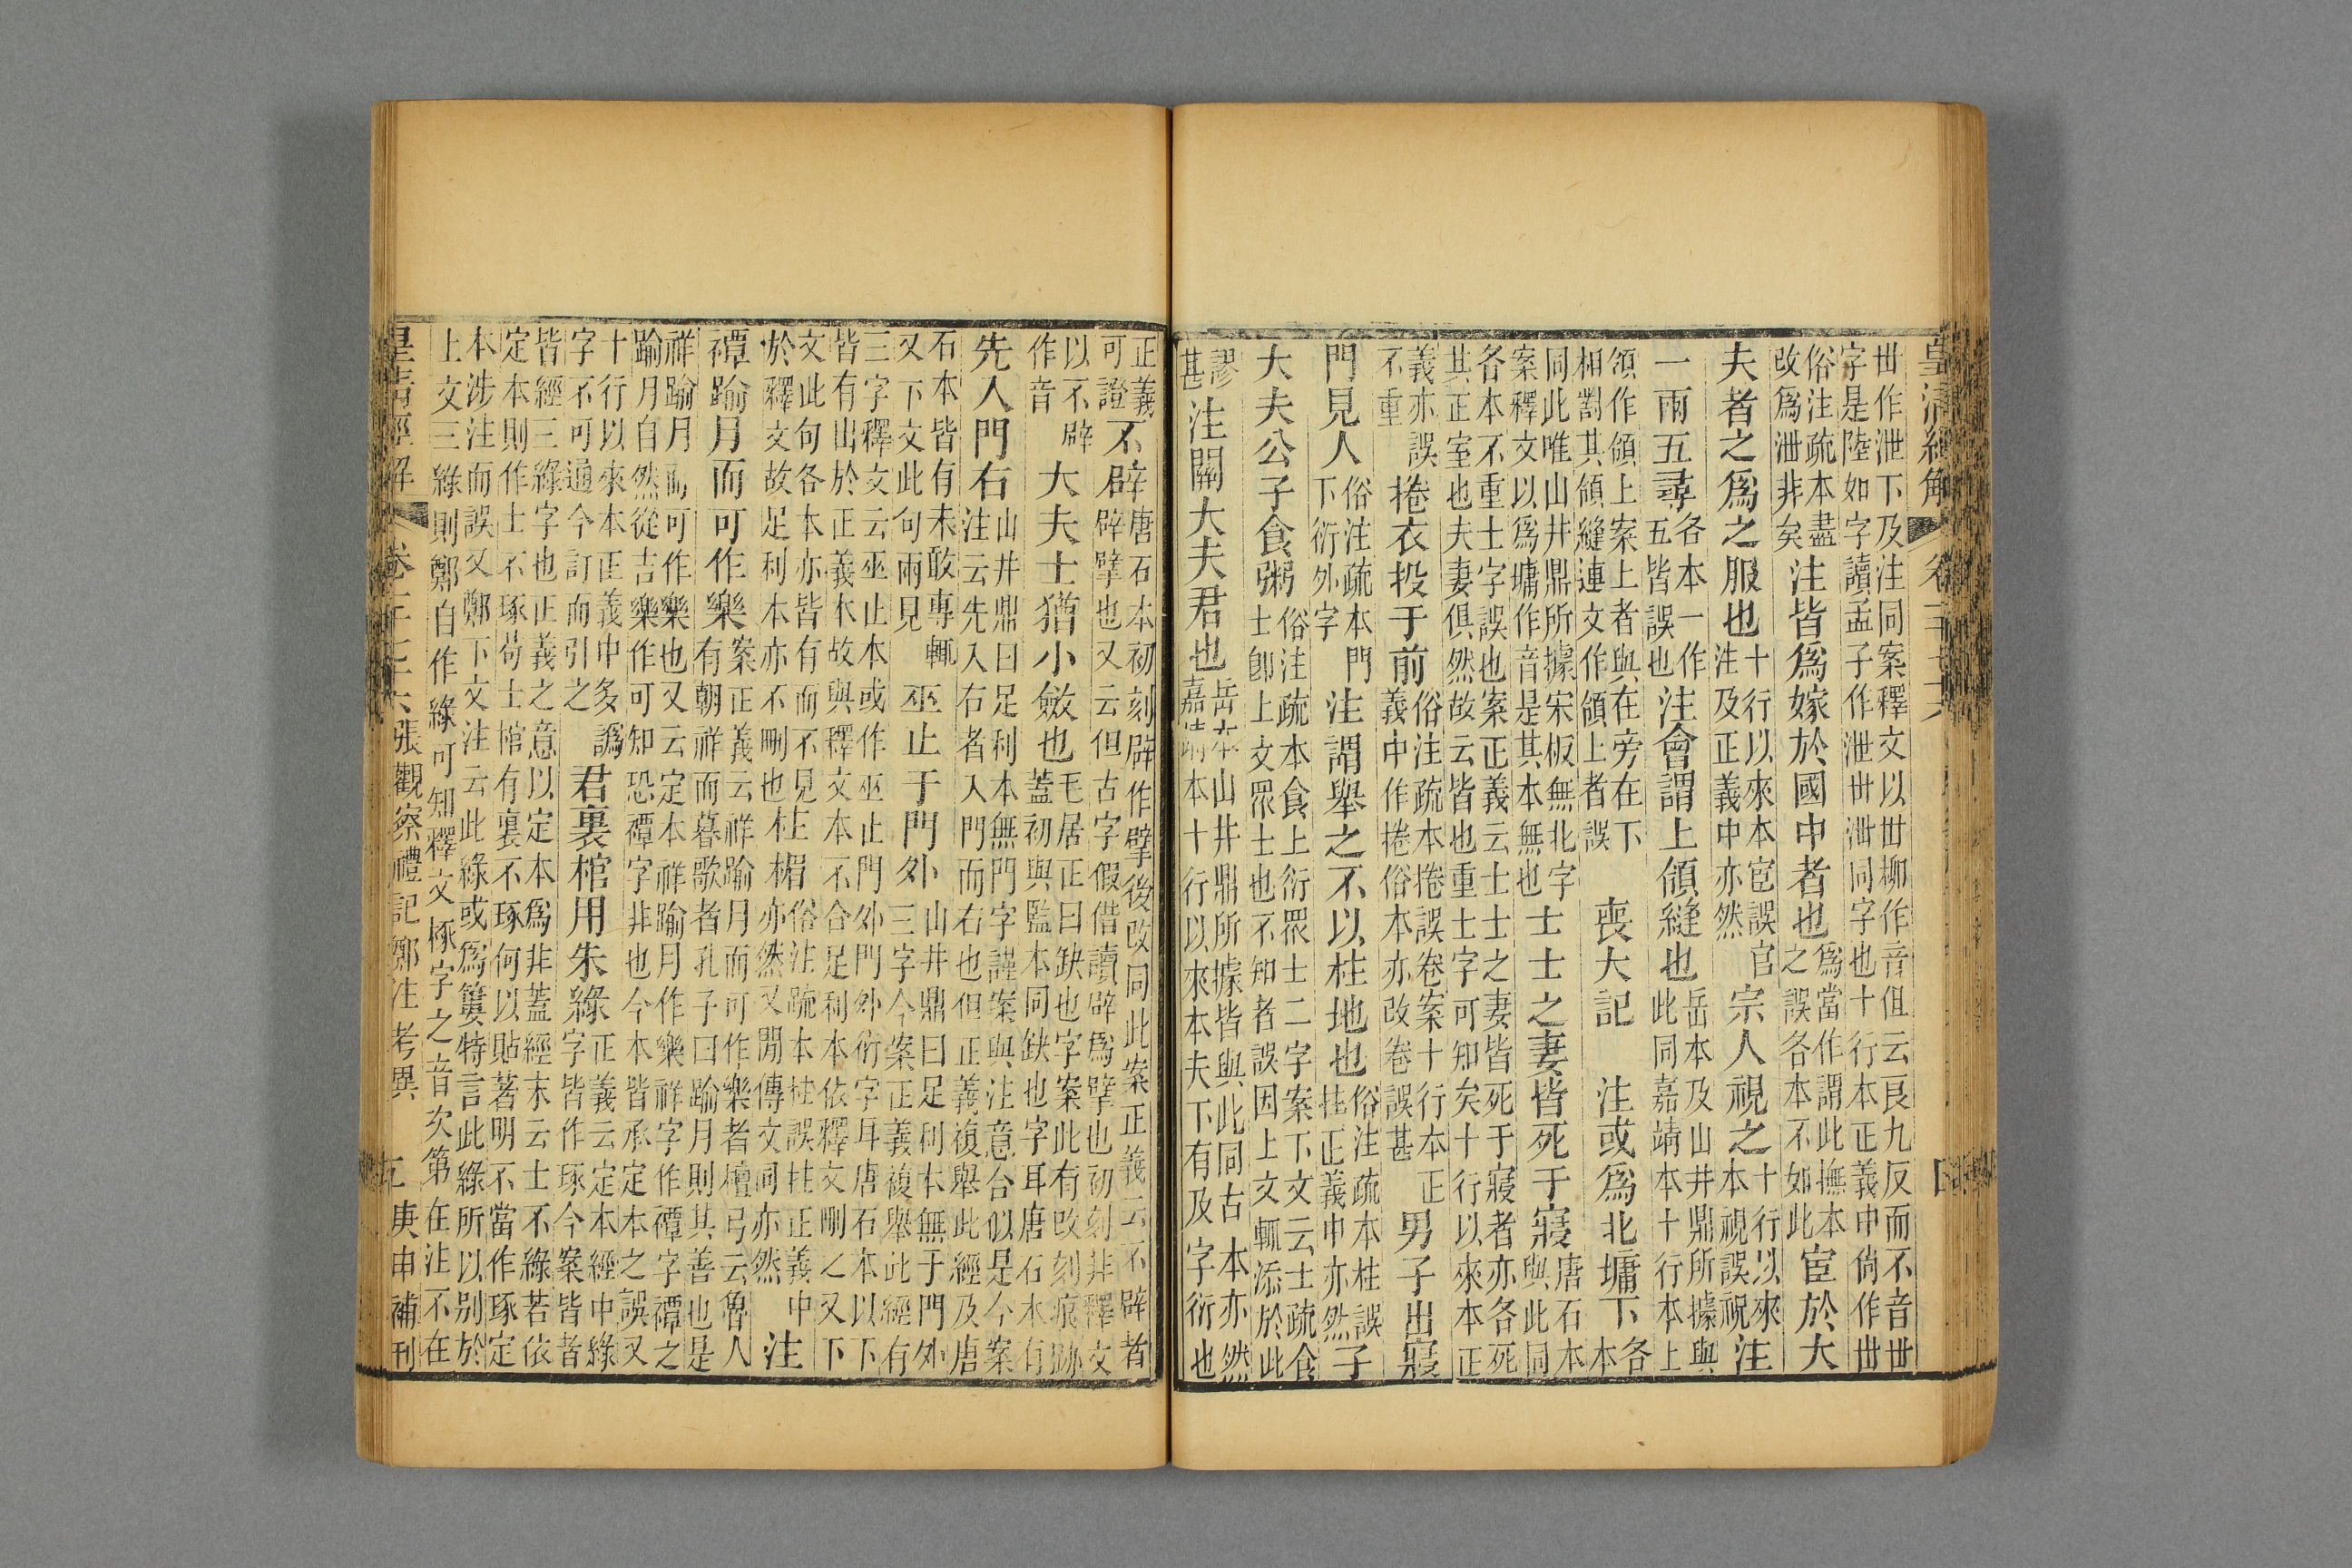 皇清經解 卷一千七十六 四
世作泄下及注同案釋文以世柳作音但云良九反而不音世
字是陸如字讀孟子作泄世泄同字也十行本正義中尙作世
俗注疏本盡改爲泄非矣 注皆爲嫁於國中者也 爲當作謂此撫本之誤各本不如此 宦於大
夫者之爲之服也 十行以來本宦誤官注及正義中亦然 宗人視之 十行以來本視誤祝 注
一兩五尋 各本一作五皆誤也 注會謂上領縫也 岳本及山井鼎所據與此同嘉靖本十行本上
領作頜上案上者與在旁在下相對其領縫連文作頜上者誤 喪大記 注或爲北墉下 各本
同此唯山井鼎所據宋板無北字案釋文以爲墉作音是其本無也 士士之妻皆死于寢 唐石本與此同
各本不重士字誤也案正義云士士之妻皆死于寢者亦各死
其正室也夫妻俱然故云皆也重士字可知矣十行以來本正
義亦誤不重 捲衣投于前 俗注疏本捲誤卷案十行本正義中作捲俗本亦改卷誤甚 男子出寢
門見人 俗注疏本門下衍外字 注謂舉之不以柱地也 俗注疏本柱誤拄正義中亦然 子
大夫公子食粥 俗注疏本食上衍眾士二字案下文云士疏食士卽上文眾士也不知者誤因上文輒添於此
謬甚 注關大夫君也 岳本山井鼎所據皆與此同古本亦然嘉靖本十行以來本夫下有及字衍也
正義可證 不辟 唐石本初刻辟作擘後改同此案正義云不辟者辟擘也又云但古字假借讀辟爲擘也初刻非釋文
以不辟作音 大夫士猶小斂也 毛居正曰缺也字案此有改刻痕跡蓋初與監本同缺也字耳唐石本有
先入門右 山井鼎曰足利本無門字謹案與注意合似是今案注云先入右者入門而右也但正義複舉此經及唐
石本皆有未敢專輒又下文此句兩見 巫止于門外 山井鼎曰足利本無于門外三字今案正義複舉此經有
三字釋文云巫止本或作巫止門外門外衍字耳唐石本以下
皆有出於正義本故與釋文本不合足利本依釋文刪之又下
文此句各本亦皆有而不見於釋文故足利本亦不刪也 柱楣 俗注疏本柱誤拄正義中亦然又閒傳文同亦然 注
禫踰月而可作樂 案正義云祥踰月而可作樂者檀弓云魯人有朝祥而暮歌者孔子曰踰月則其善也是
祥踰月而可作樂也又云定本祥踰月作樂祥字作禫字禫之
踰月自然從吉樂作可知恐禫字非也今本皆承定本之誤又
十行以來本正義中多譌字不可通今訂而引之 君裏棺用朱綠 正義云定本經中綠字皆作琢今案皆者
皆經三綠字也正義之意以定本爲非蓋經末云士不綠若依
定本則作士不琢苟士棺有裏不琢何以貼著明不當作琢定
本涉注而誤又鄭下文注云此綠或爲簍特言此綠所以別於
上文三綠則鄭自作綠可知釋文椓字之音次第在注不在
皇清經解 卷一千七十六張觀察禮記鄭注考異 五 庚申補刊